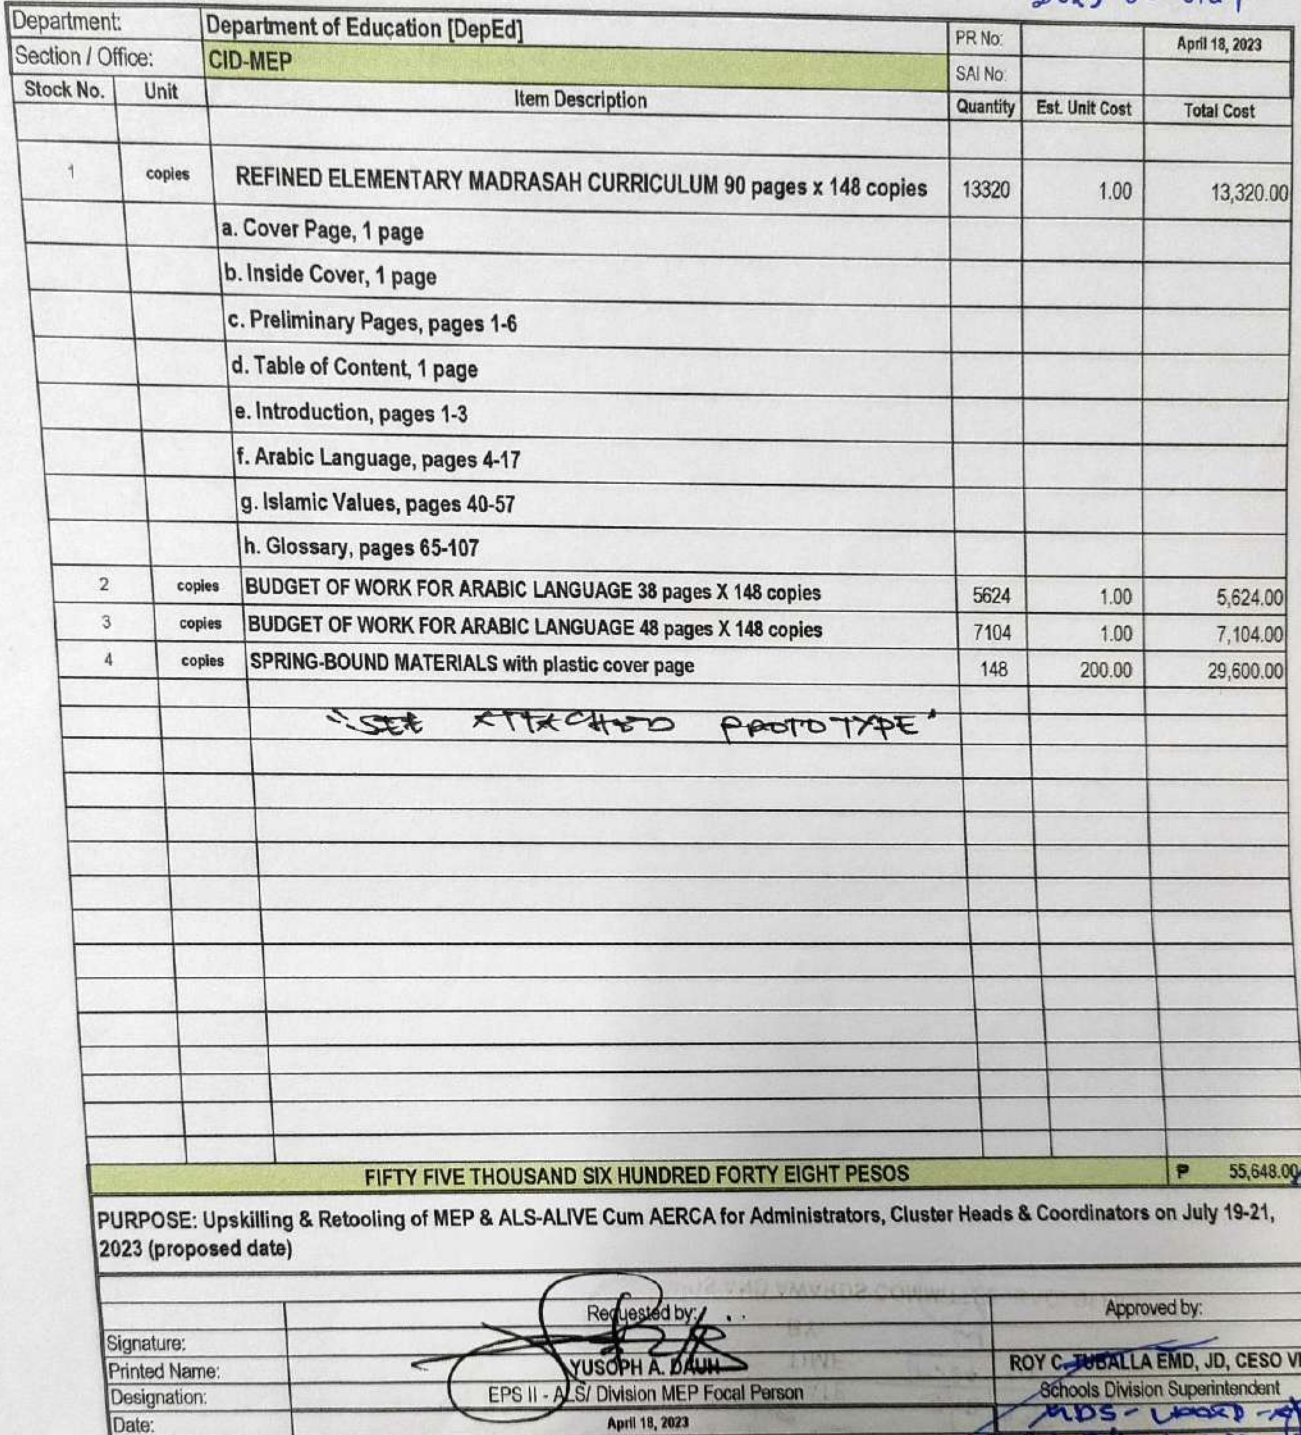 Department: Department of Education [DepEd] PR No: April 18, 2023
Section / Office: CID-MEP SAI No:
Stock No. Unit Item Description Quantity Est. Unit Cost Total Cost
1 copies REFINED ELEMENTARY MADRASAH CURRICULUM 90 pages x 148 copies 13320 1.00 13,320.00
a. Cover Page, 1 page
b. Inside Cover, 1 page
c. Preliminary Pages, pages 1-6
d. Table of Content, 1 page
e. Introduction, pages 1-3
f. Arabic Language, pages 4-17
g. Islamic Values, pages 40-57
h. Glossary, pages 65-107
2 copies BUDGET OF WORK FOR ARABIC LANGUAGE 38 pages X 148 copies 5624 1.00 5,624.00
3 copies BUDGET OF WORK FOR ARABIC LANGUAGE 48 pages X 148 copies 7104 1.00 7,104.00
4 copies SPRING-BOUND MATERIALS with plastic cover page 148 200.00 29,600.00
"SEE ATTACHED PROTOTYPE"
FIFTY FIVE THOUSAND SIX HUNDRED FORTY EIGHT PESOS ₱ 55,648.00
PURPOSE: Upskilling & Retooling of MEP & ALS-ALIVE Cum AERCA for Administrators, Cluster Heads & Coordinators on July 19-21,
2023 (proposed date)
Requested by: Approved by:
Signature:
Printed Name: YUSOPH A. DAUH ROY C. TUBALLA EMD, JD, CESO VI
Designation: EPS II - ALS/ Division MEP Focal Person Schools Division Superintendent
Date: April 18, 2023